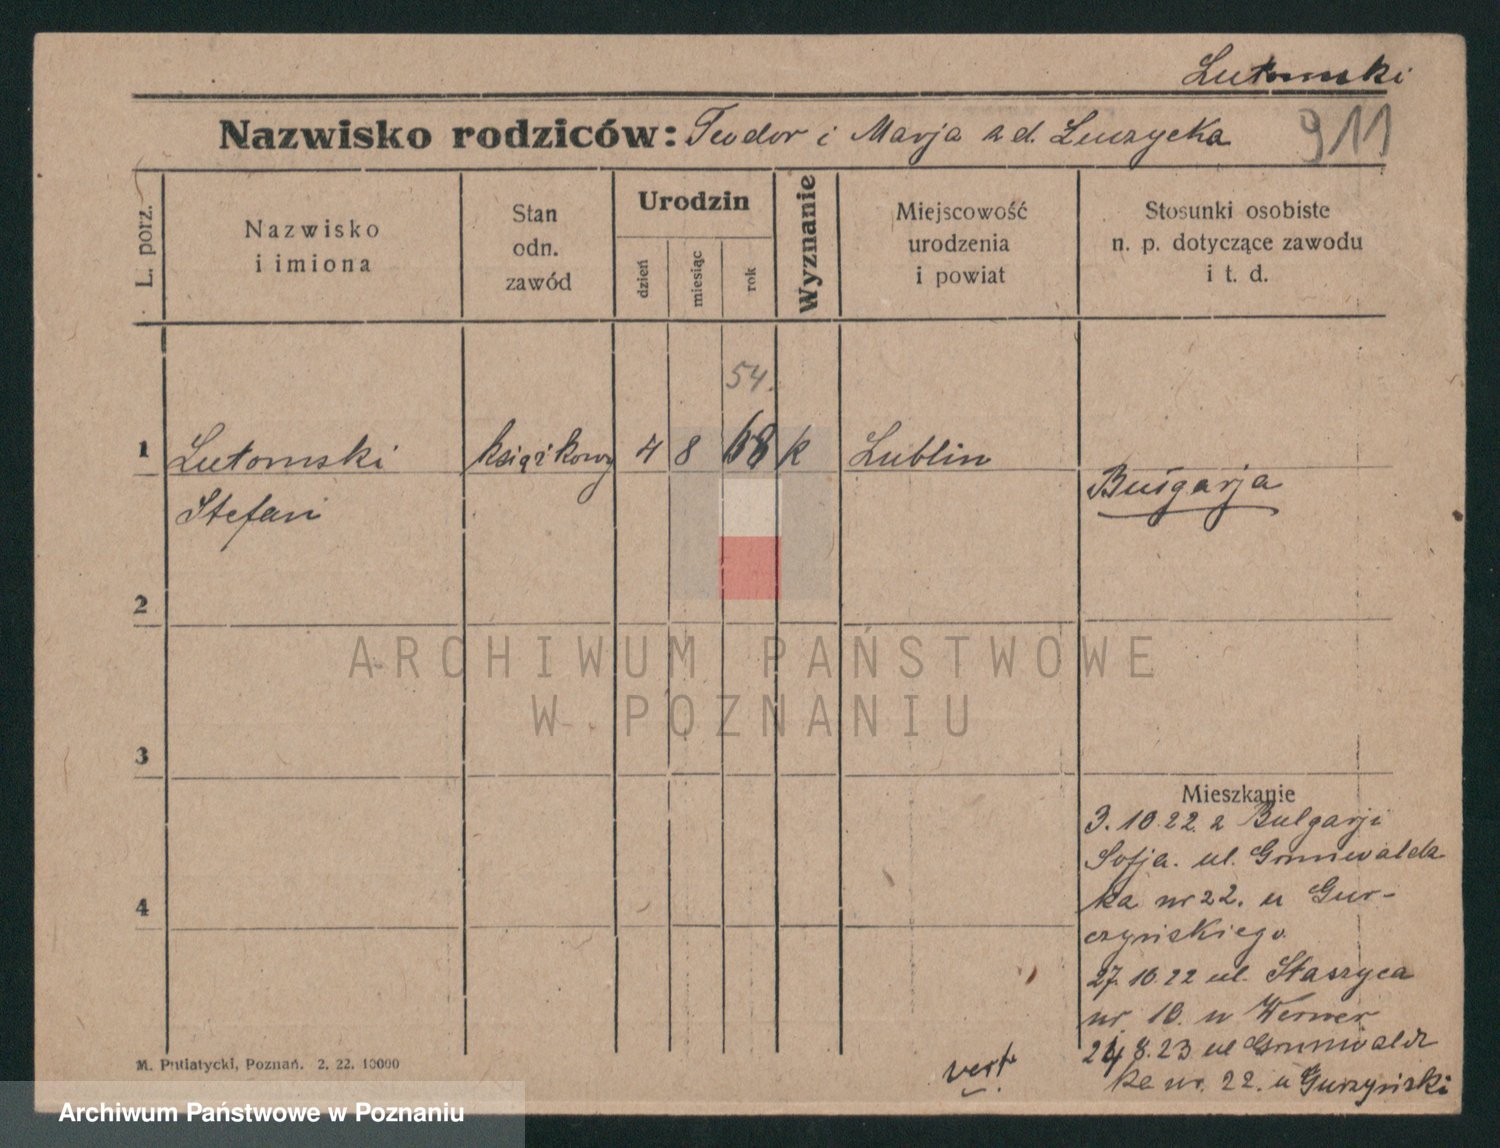 Lutomski
Nazwisko rodziców: Teodor i Marja z d. Luczycka
911
L. porz.
Nazwisko
i imiona
Stan
odn.
zawód
Urodzin
dzień
miesiąc
rok
Wyznanie
Miejscowość
urodzenia
i powiat
Stosunki osobiste
n. p. dotyczące zawodu
i t. d.
54.
1 Lutomski książkowy 4 8 68 k Lublin
Stefan
Bułgarja
2
ARCHIWUM PAŃSTWOWE
W POZNANIU
3
Mieszkanie
3.10.22 z Bulgarji
Sofja. ul. Grunwaldz
ka nr 22. u Gur-
czyńskiego.
4
27.10.22 ul. Staszyca
nr. 10. u Werner
24 8.23 ul Grunwaldz
ka nr. 22. u Gurzyński
vert.
M. Putiatycki, Poznań. 2. 22. 10000
Archiwum Państwowe w Poznaniu